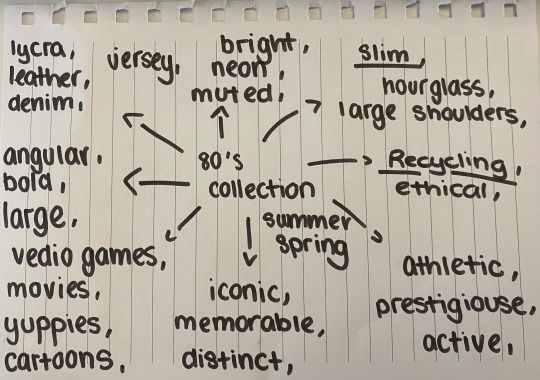 lycra,
leather,
denim,
jersey,
bright,
neon,
muted,
slim,
hourglass,
large shoulders,
angular.
bold,
large,
80's
collection
summer
spring
Recycling,
ethical,
vedio games,
movies,
yuppies,
cartoons,
iconic,
memorable,
distinct,
athletic,
prestigiouse,
active,